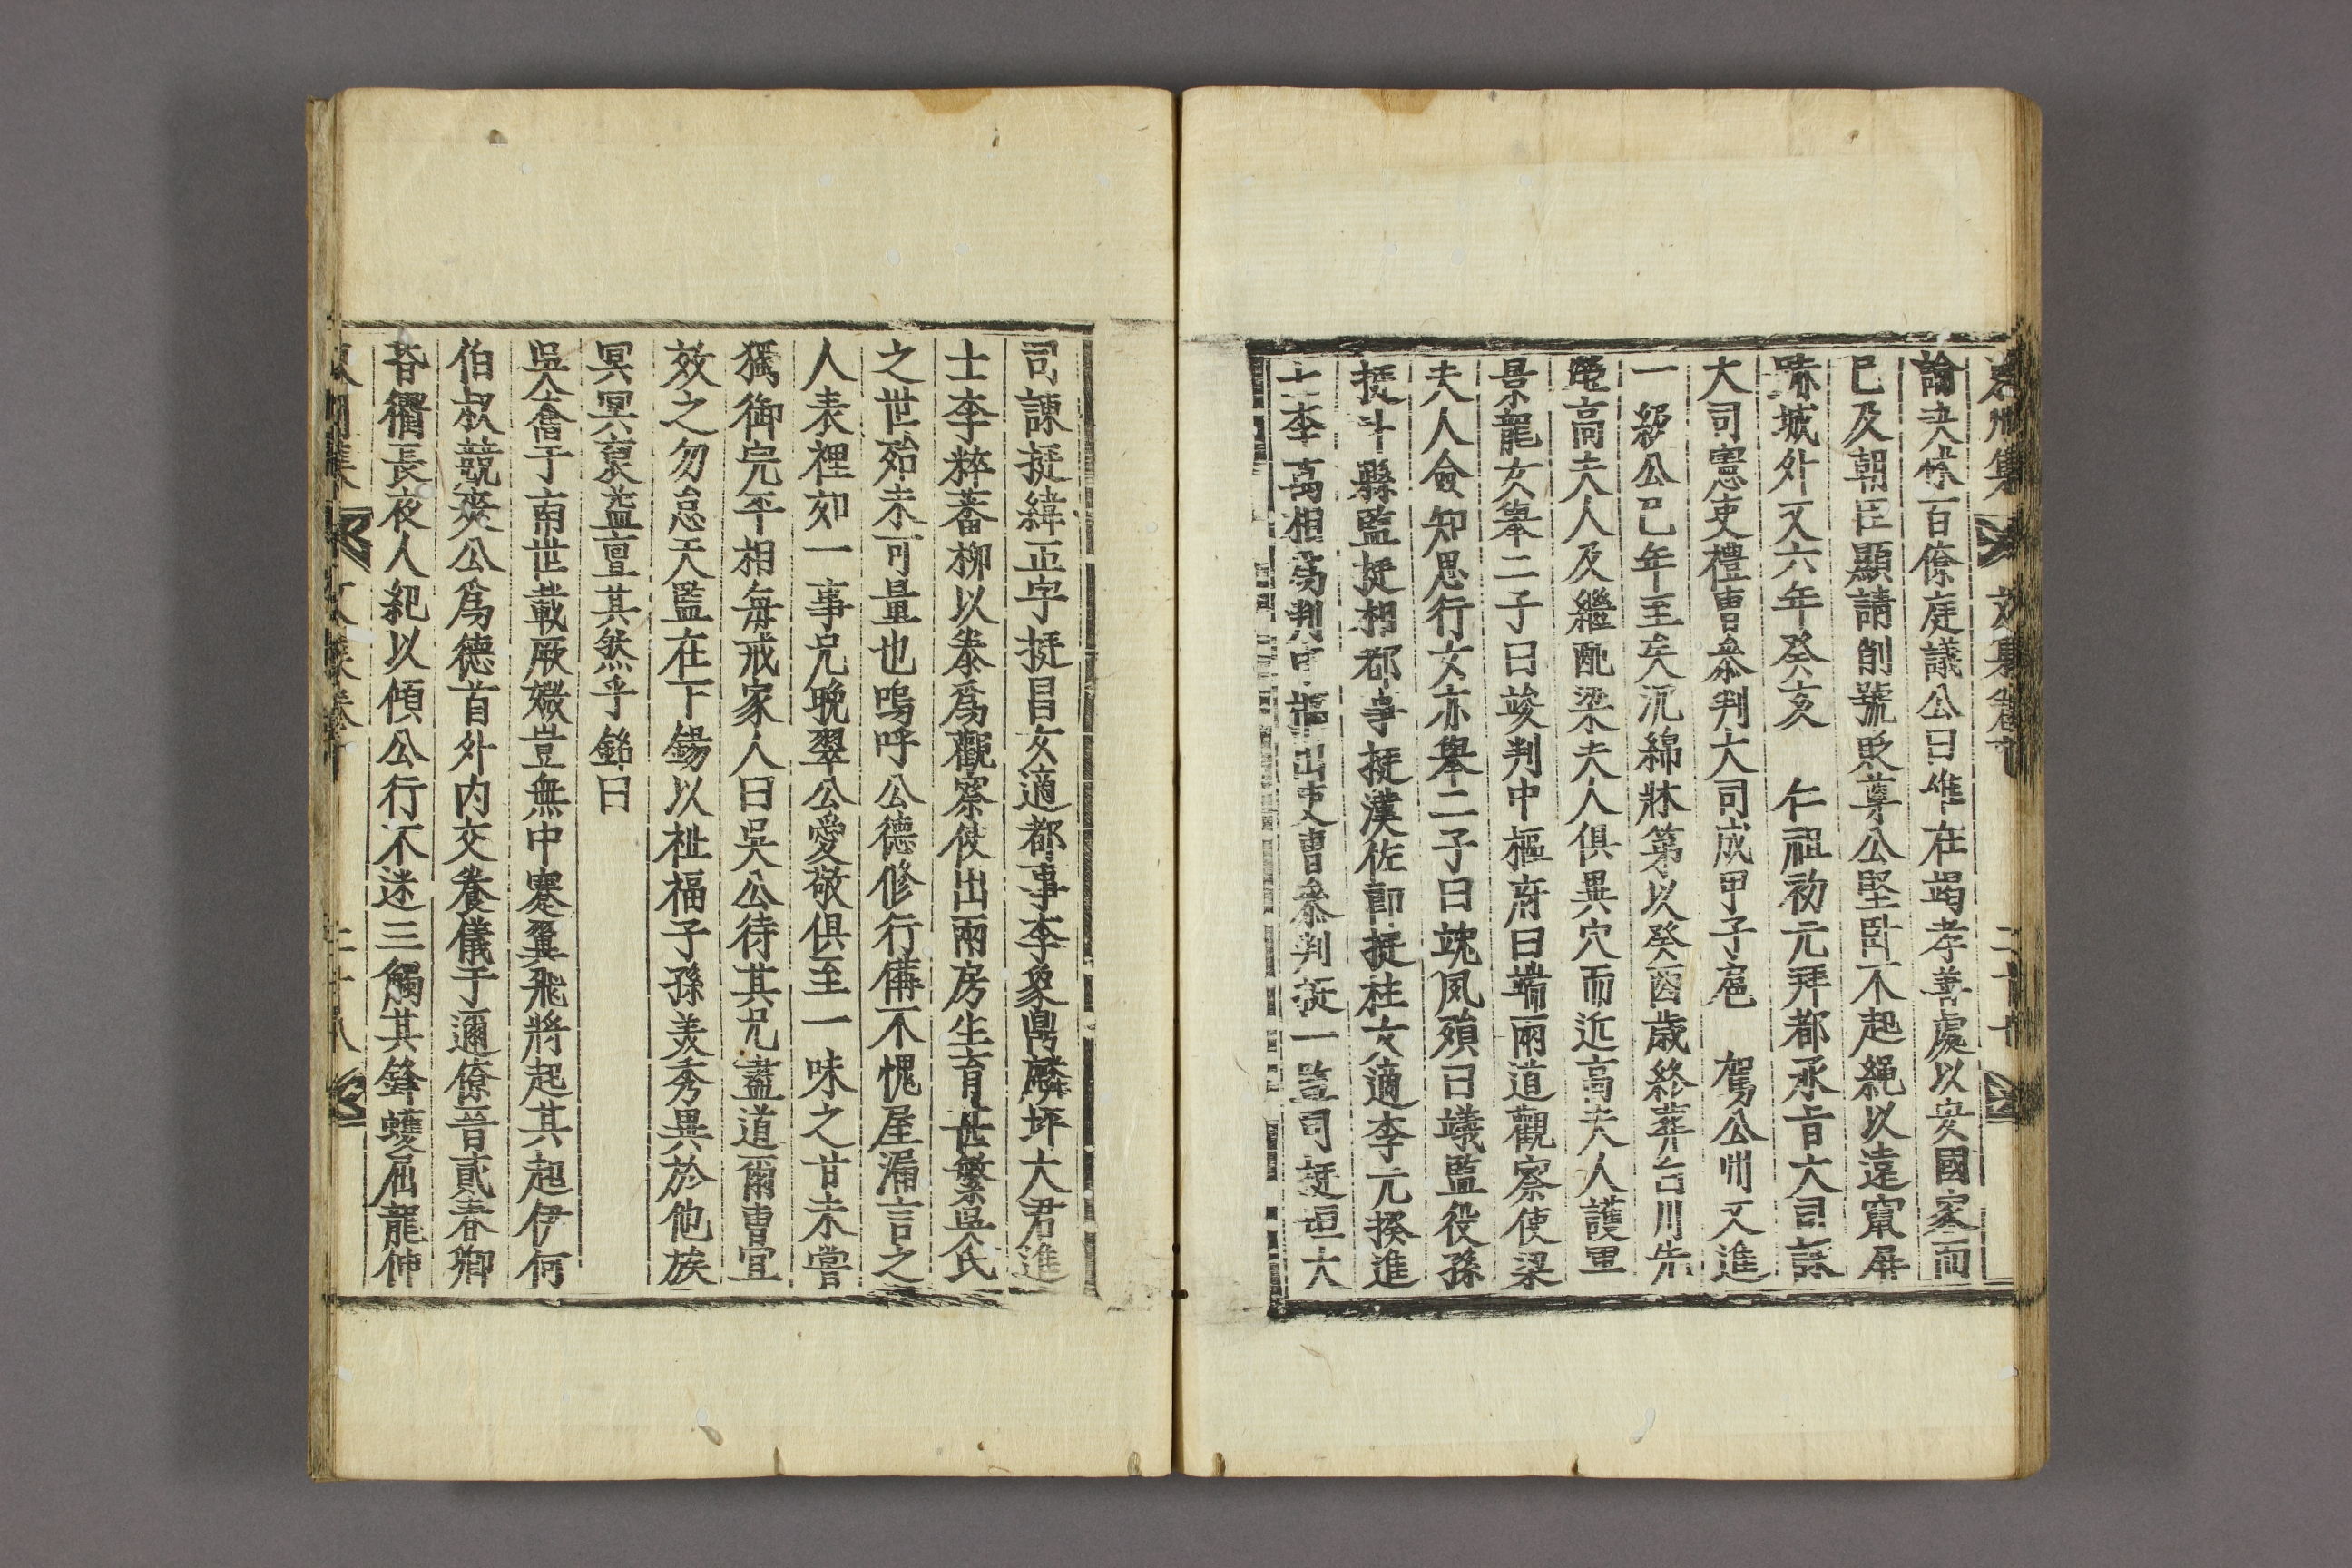 集 文集卷十 二十七
論夬怵百僚庭議公曰唯在竭孝善處以安國家而
已及朝臣顯請削號貶尊公堅臥不起繩以遠竄屏
城外又六年癸亥 仁祖初元拜都承旨大司諫
大司憲吏禮曹叅判大司成甲子扈 駕公州又進
一級公已年至矣沉綿牀笫以癸酉歲終葬台川先
塋高夫人及繼配梁夫人俱異穴而近高夫人護軍
景龍女擧二子曰竣判中樞府曰端兩道觀察使梁
夫人僉知思行女亦擧二子曰竨夙殞曰㠖監役孫
挺斗縣監挺相都事挺漢佐郎挺柱女適李元揆進
士李萬相爲判中樞出吏曹叅判挺一監司挺垣大
司諫挺緯正字挺昌女適都事李象鼎麟坪大君進
士李粹蕃柳以泰爲觀察使出兩房生育甚繁吳氏
之世殆未可量也嗚呼公德修行備不愧屋漏言之
人表裡如一事兄晩翠公愛敬俱至一味之甘未嘗
獨御完平相每戒家人曰吳公待其兄盡道爾曹宜
效之勿怠天監在下錫以祉福子孫美秀異於他族
冥冥裒益亶其然乎銘曰
吳奮于南世載厥媺豈無中蹇翼飛將起其起伊何
伯叔競爽公爲德首外內交養儀于邇僚晉貳春卿
昏霿長夜人紀以傾公行不迷三觸其鋒蠖屈龍伸
集 文集卷十 二十八